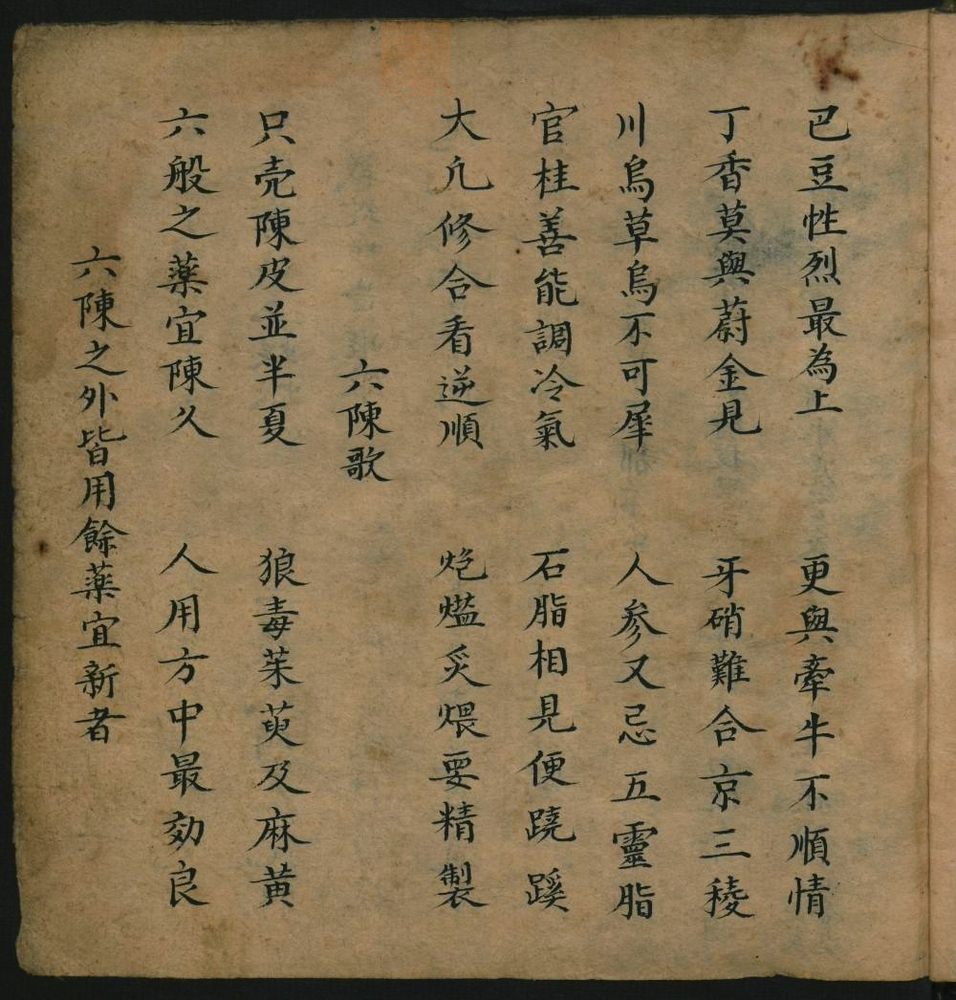 巴豆性烈最為上 更與牽牛不順情
丁香莫與蔚金見 牙硝難合京三稜
川烏草烏不可犀 人參又忌五靈脂
官桂善能調冷氣 石脂相見便蹺蹊
大凢修合看逆順 炮爁炙煨要精製
六陳歌
只壳陳皮並半夏 狼毒茱萸及麻黄
六般之藥宜陳久 人用方中最効良
六陳之外皆用餘藥宜新者